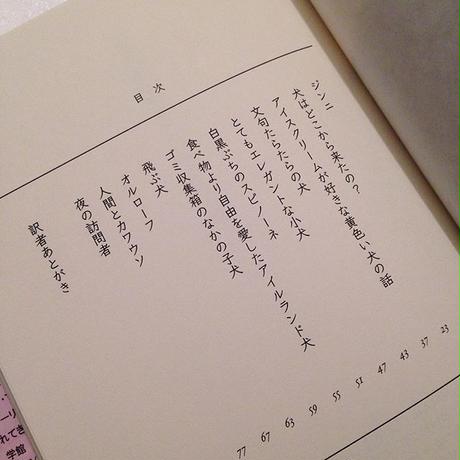 目次
ジンニ
犬はどこから来たの?
アイスクリームが好きな黄色い犬の話
文句たらたらの犬
とてもエレガントな小犬
白黒ぶちのスピノーネ
食べ物より自由を愛したアイルランド犬
ゴミ収集箱のなかの子犬
飛ぶ犬
オルローフ
人間とカワウソ
夜の訪問者
訳者あとがき
23
37
43
47
51
55
59
63
67
77
ーリ
れてき
学館